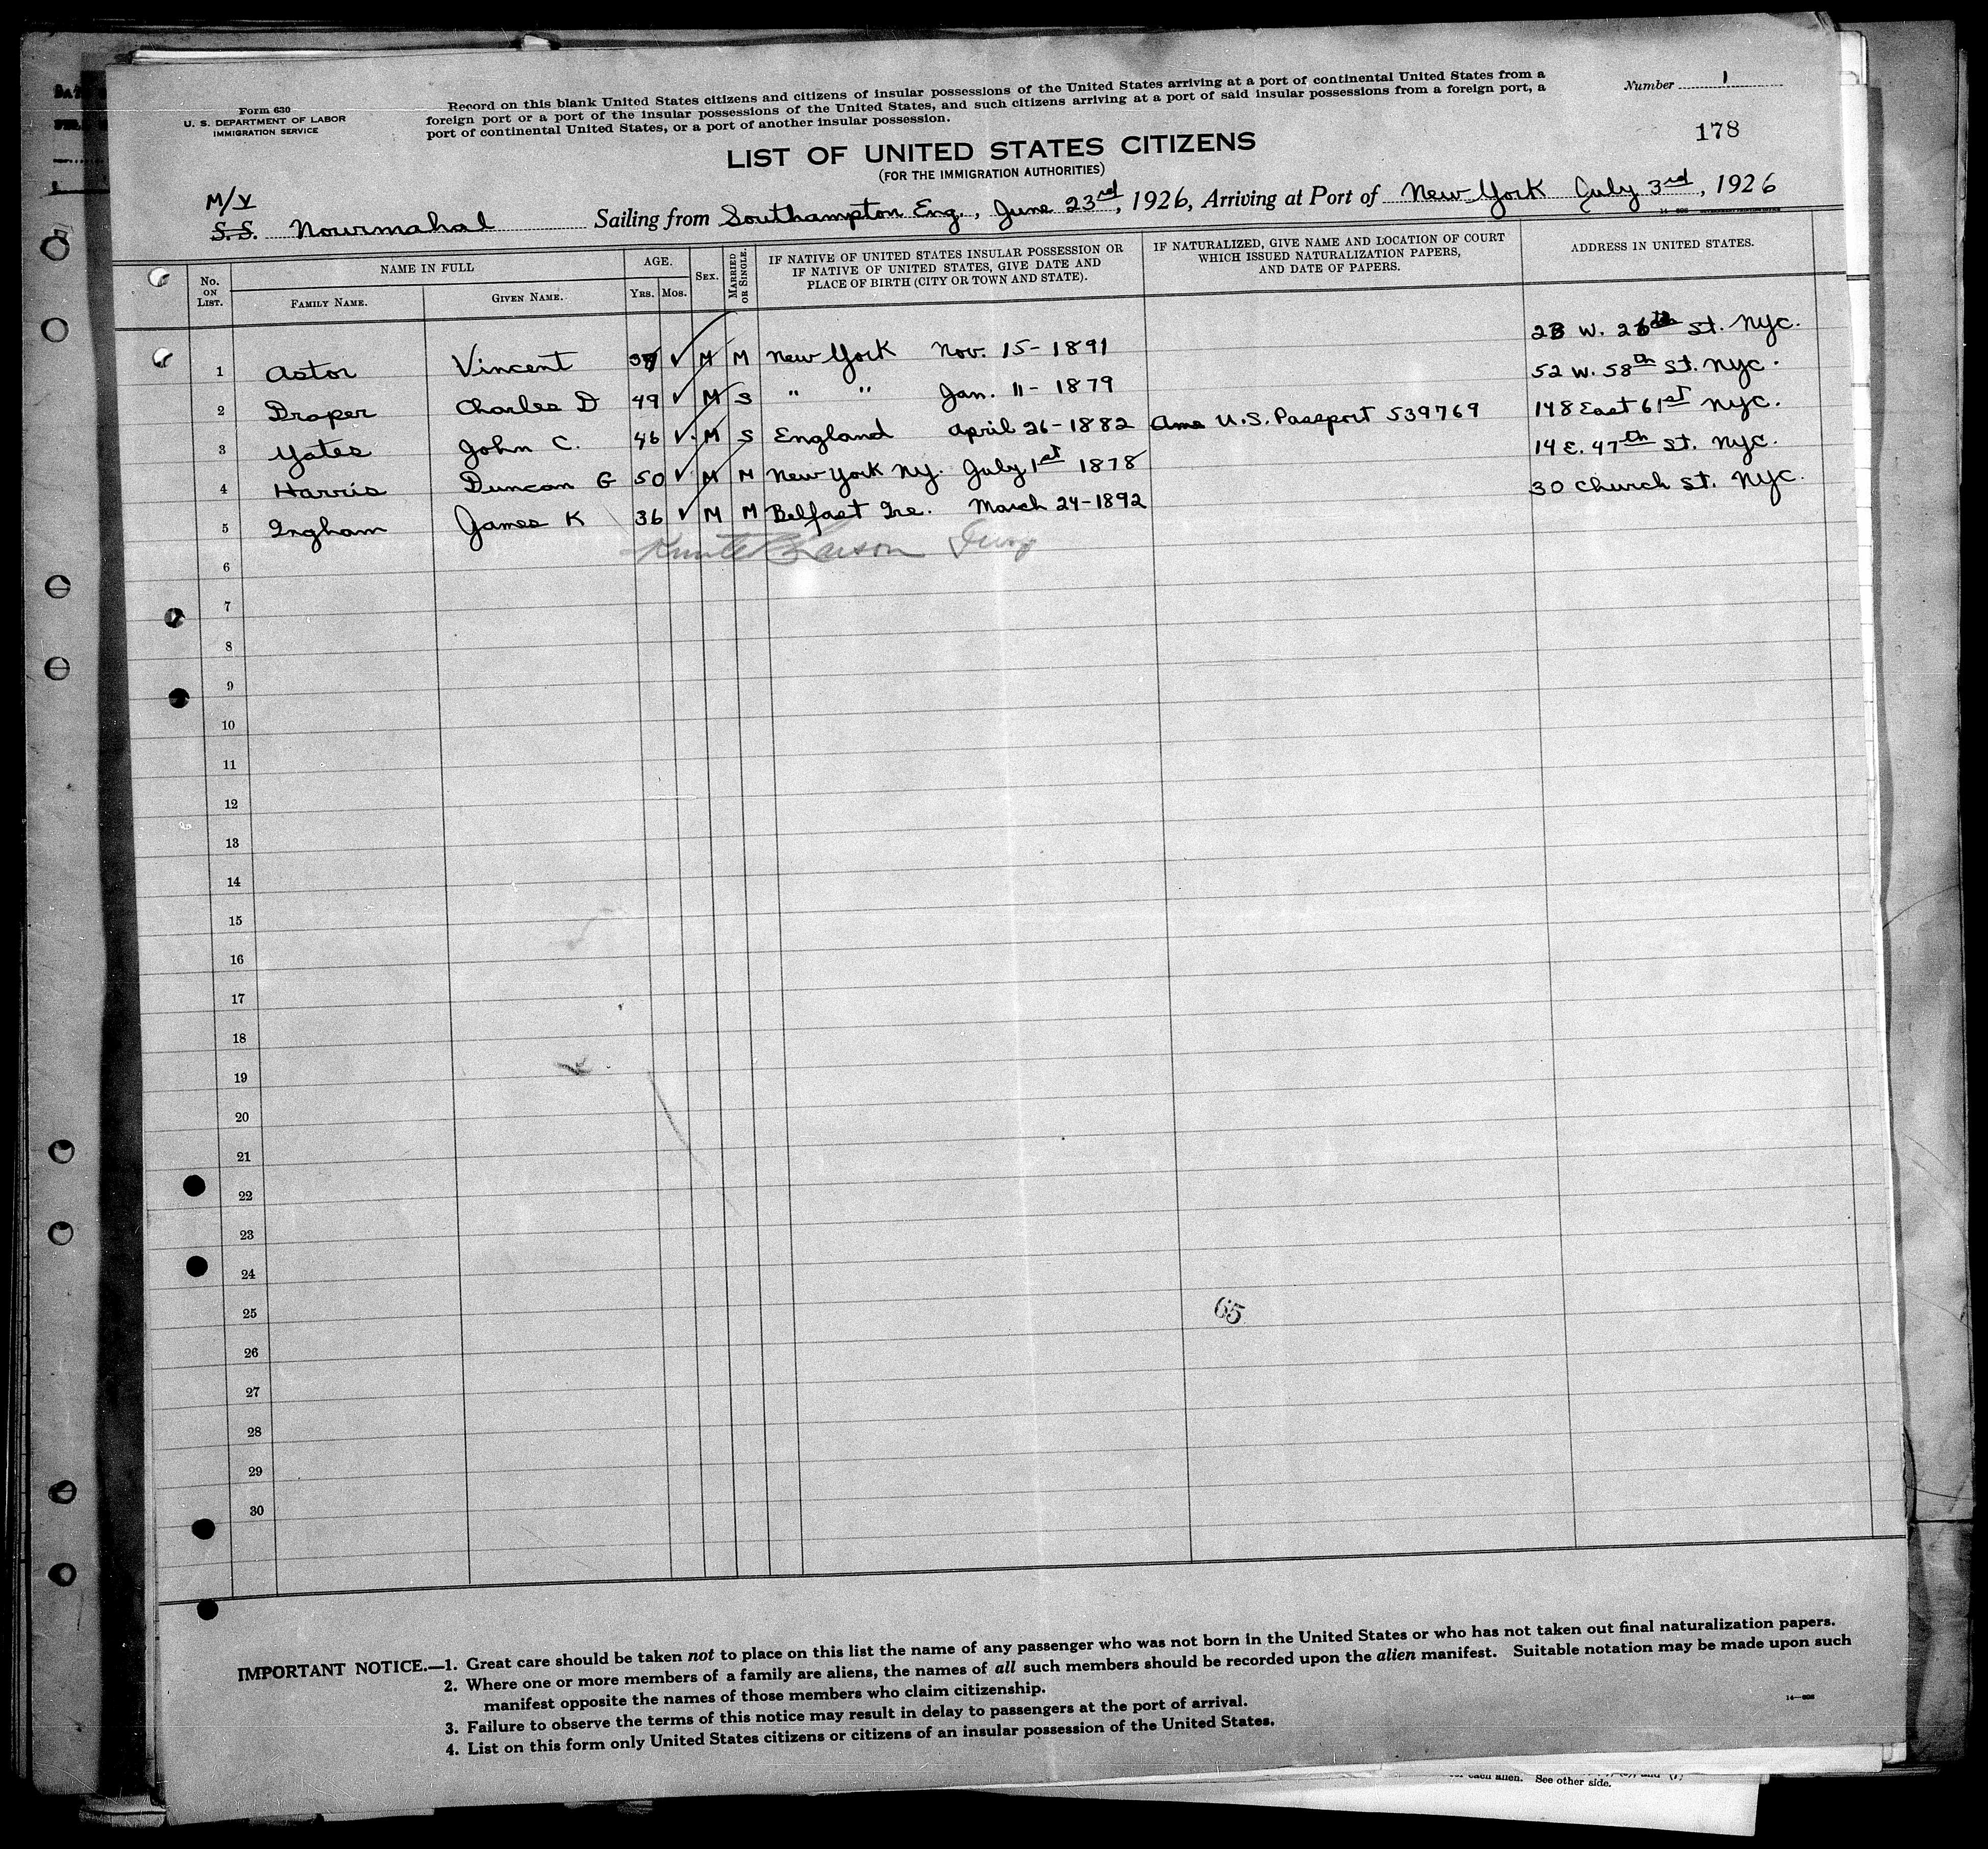 Form 630
U. S. DEPARTMENT OF LABOR
IMMIGRATION SERVICE
Record on this blank United States citizens and citizens of insular possessions of the United States arriving at a port of continental United States from a
foreign port or a port of the insular possessions of the United States, and such citizens arriving at a port of said insular possessions from a foreign port, a
port of continental United States, or a port of another insular possession.
Number 1
178
LIST OF UNITED STATES CITIZENS
(FOR THE IMMIGRATION AUTHORITIES)
M/V
S.S. Nourmahal Sailing from Southampton Eng., June 23rd, 1926, Arriving at Port of New York July 3rd, 1926
No. ON LIST. NAME IN FULL FAMILY NAME. GIVEN NAME. AGE. YRS. MOS. SEX. MARRIED OR SINGLE. IF NATIVE OF UNITED STATES INSULAR POSSESSION OR IF NATIVE OF UNITED STATES, GIVE DATE AND PLACE OF BIRTH (CITY OR TOWN AND STATE). IF NATURALIZED, GIVE NAME AND LOCATION OF COURT WHICH ISSUED NATURALIZATION PAPERS, AND DATE OF PAPERS. ADDRESS IN UNITED STATES.
1 Astor Vincent M M New York Nov. 15-1891 W. St. NYC.
2 Draper Charles D 49 M S " " Jan. 11-1879 52 W. 58th St. NYC.
3 Yates John C. 46 M S England April 26-1882 U.S. Passport 539769 148 East 61st NYC.
4 Harris Duncan G 50 M M New York NY. July 1st 1878 14 E. 47th St. NYC.
5 Ingham James K 36 M M Belfast Ire. March 24-1892 30 Church St. NYC.
6
7
8
9
10
11
12
13
14
15
16
17
18
19
20
21
22
23
24
25
65
26
27
28
29
30
IMPORTANT NOTICE.—1. Great care should be taken not to place on this list the name of any passenger who was not born in the United States or who has not taken out final naturalization papers.
2. Where one or more members of a family are aliens, the names of all such members should be recorded upon the alien manifest. Suitable notation may be made upon such
manifest opposite the names of those members who claim citizenship.
3. Failure to observe the terms of this notice may result in delay to passengers at the port of arrival.
4. List on this form only United States citizens or citizens of an insular possession of the United States.
each alien. See other side.